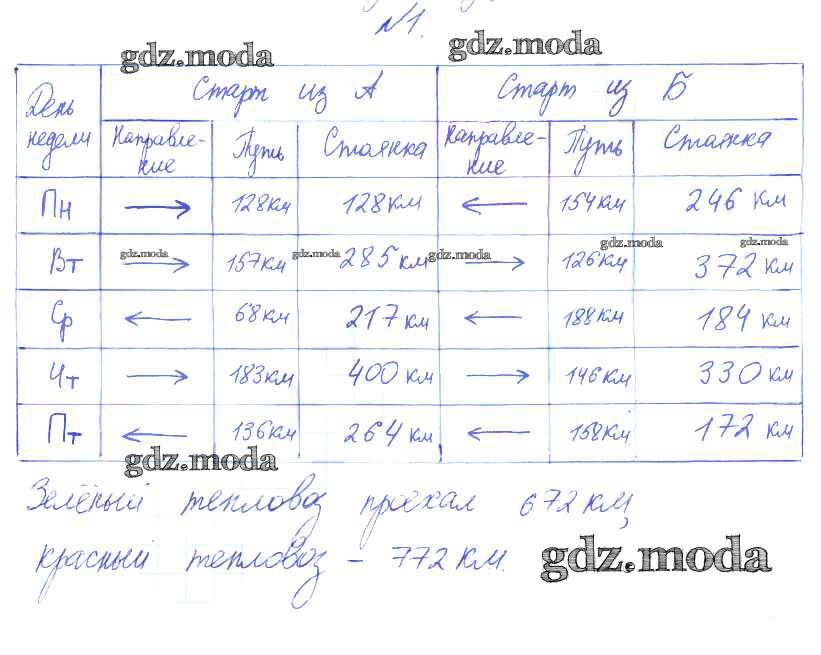 №1.
gdz.moda gdz.moda
День недели Старт из А Старт из Б
Направле-ние Путь Стоянка Направле-ние Путь Стоянка
Пн → 128км 128км ← 154км 246 км
Вт → 157км 285 км → 126км 372 км
gdz.moda gdz.moda gdz.moda gdz.moda gdz.moda
Ср ← 68км 217 км ← 188км 184 км
Чт → 183км 400 км → 146км 330 км
Пт ← 136км 264 км ← 158км 172 км
gdz.moda
Зелёный тепловоз проехал 672 км,
красный тепловоз – 772 км.
gdz.moda